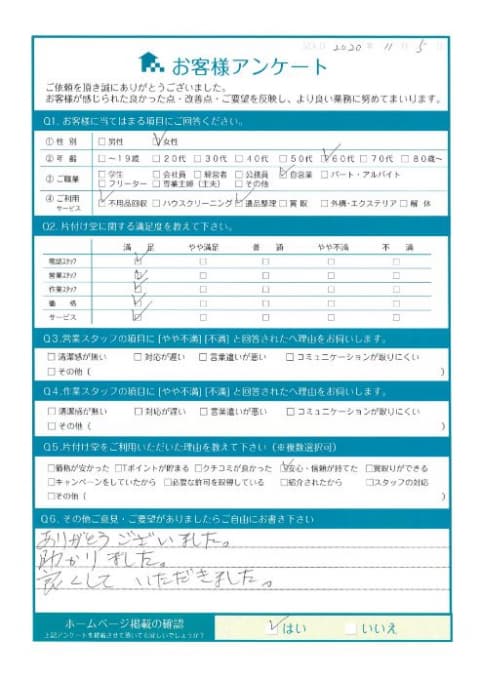 記入日 2020年 11月 5日
お客様アンケート
ご依頼を頂き誠にありがとうございました。
お客様が感じられた良かった点・改善点・ご要望を反映し、より良い業務に努めてまいります。
Q1. お客様に当てはまる項目にご回答ください。
①性 別 □男性 ☑女性
②年 齢 □~19歳 □20代 □30代 □40代 □50代 ☑60代 □70代 □80歳~
③ご職業 □学生 □会社員 □経営者 □公務員 ☑自営業 □パート・アルバイト
□フリーター □専業主婦(主夫) □その他
④ご利用サービス ☑不用品回収 □ハウスクリーニング ☑遺品整理 □買取 □外構・エクステリア □解体
Q2. 片付け堂に関する満足度を教えて下さい。
満 足 やや満足 普 通 やや不満 不 満
電話スタッフ ☑ □ □ □ □
営業スタッフ ☑ □ □ □ □
作業スタッフ ☑ □ □ □ □
価 格 ☑ □ □ □ □
サービス ☑ □ □ □ □
Q3.営業スタッフの項目に[やや不満][不満]と回答された方へ理由をお伺いします。
□清潔感が無い □対応が遅い □言葉遣いが悪い □コミュニケーションが取りにくい
□その他( )
Q4.作業スタッフの項目に[やや不満][不満]と回答された方へ理由をお伺いします。
□清潔感が無い □対応が遅い □言葉遣いが悪い □コミュニケーションが取りにくい
□その他( )
Q5.片付け堂をご利用いただいた理由を教えて下さい(※複数選択可)
□価格が安かった □Tポイントが貯まる □クチコミが良かった ☑安心・信頼が持てた □買取りができる
□キャンペーンをしていたから □必要な許可を取得している □紹介されたから □スタッフの対応
□その他(
Q6. その他ご意見・ご要望がありましたらご自由にお書き下さい
ありがとうございました。
助かりました。
良くして いただきました。
ホームページ掲載の確認
上記アンケートを掲載させて頂いてもよろしいでしょうか?
☑はい □いいえ